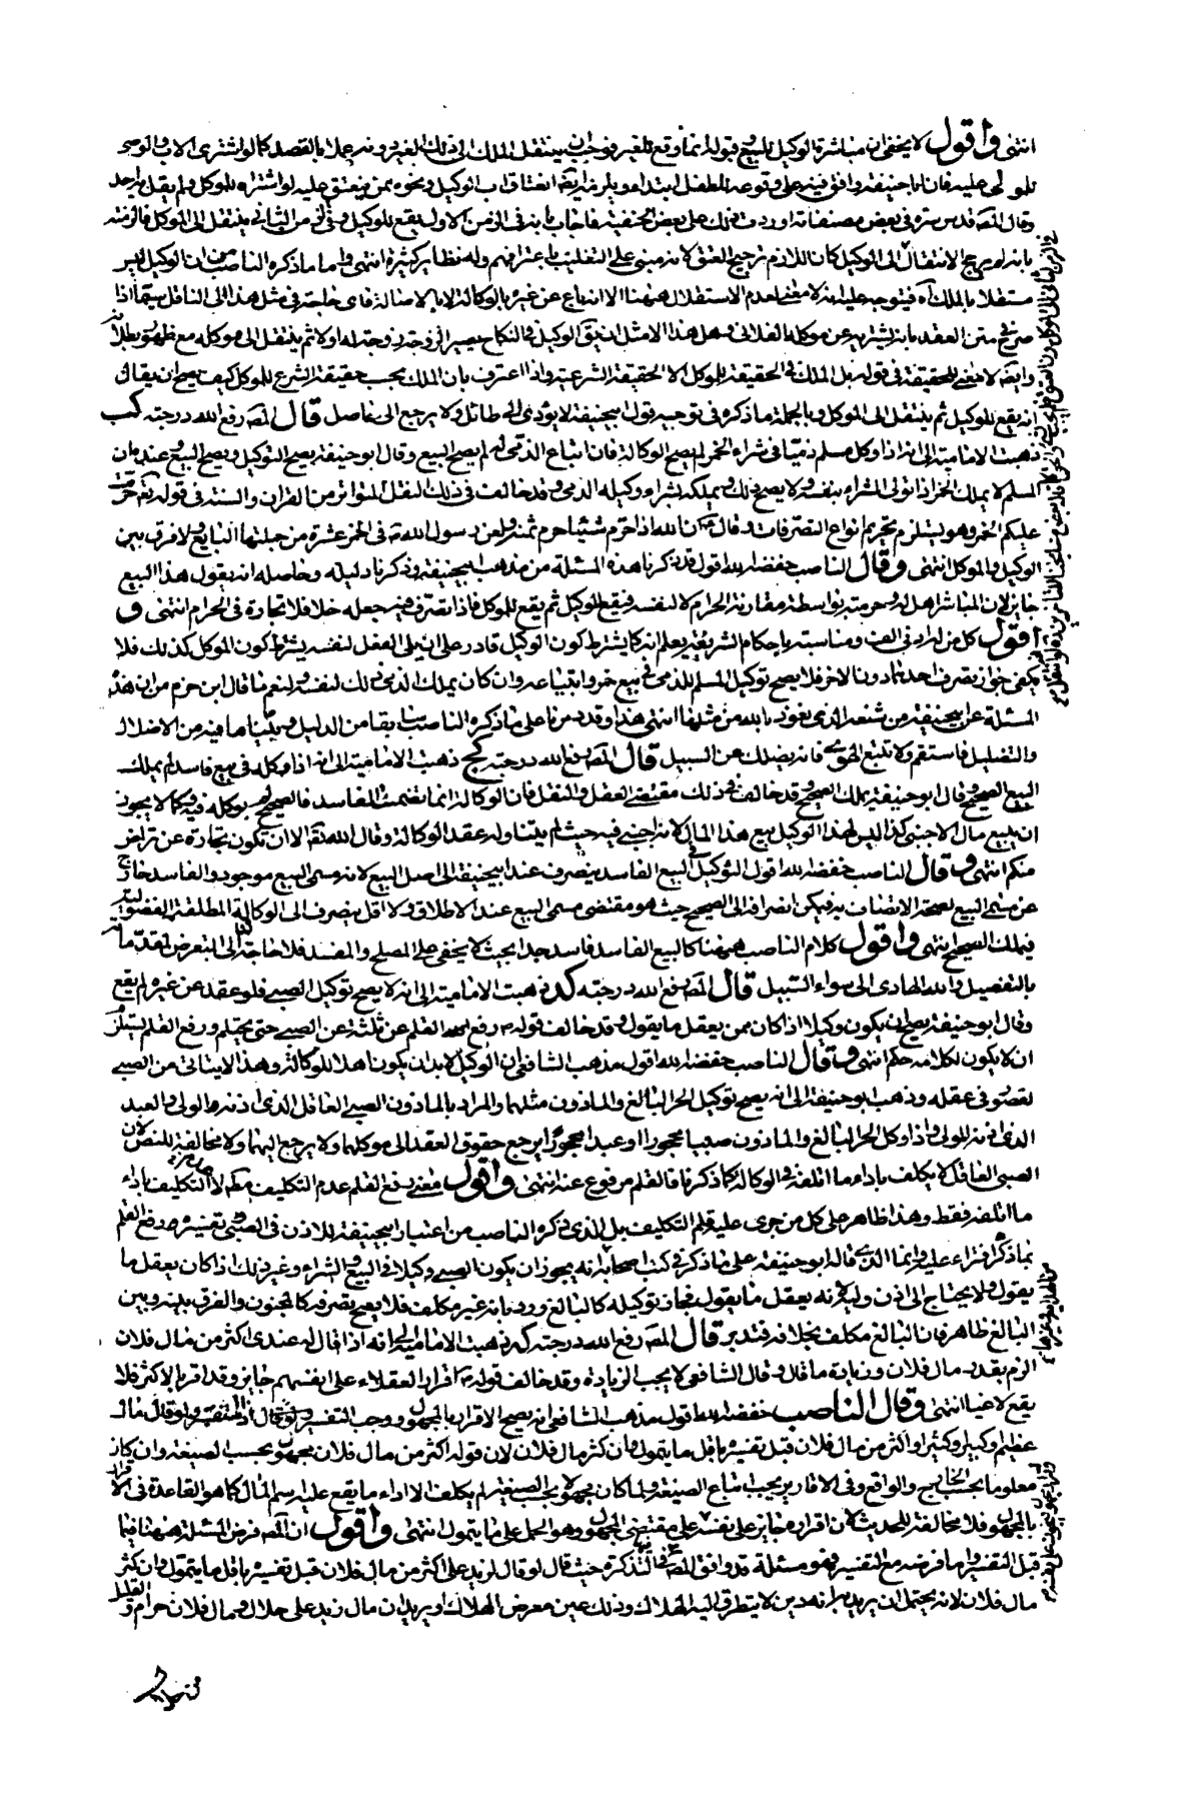 انتهى واقول لا يخفى ان مباشرة الوكيل للبيع وقبوله انما وقع للغير فوجب ان ينتقل الملك الى ذلك الغير دونه عملا بالقصد كما لو اشترى الاب والوصى
للمولى عليه فان ابا حنيفة وافق فيه على وقوعه للطفل ابتداء ويلزمه ايضا انعتاق اب الوكيل ونحوه ممن ينعتق عليه لو اشتراه للموكل ولم يقل به احد
وقال المص قدس سره فى بعض مصنفاته اوردت ذلك على بعض الحنفية فاجاب بانه فى الزمن الاول يقع للوكيل وفى الزمن الثانى ينتقل الى الموكل فالزمته
بانه لم يرجح الانتقال الى الوكيل كان اللازم ترجيح العتق لانه مبنى على التغليب باعترافهم وله نظاير كثيرة انتهى واما ما ذكره الناصب من ان الوكيل ليس
مستقلا بالملك آه فيتوجه عليه انه لا معنى لعدم الاستقلال ههنا الا انه باع عن غيره بالوكالة لا بالاصالة فاى حاجة فى مثل هذا الى الناقل سيما اذا
صرح فى متن العقد بانه يشتريه عن موكله الفلانى وهل هذا الا مثل ان يق الوكيل فى النكاح يصير الزوجة زوجة له اولا ثم ينتقل الى موكله مع ظهور بطلانه
وايضا لا معنى للحقيقة فى قوله بل الملك فى الحقيقة للموكل الا الحقيقة الشرعية واذا اعترف بان الملك بحسب حقيقة الشرع للموكل كيف يصح ان يقال
انه يقع للوكيل ثم ينتقل الى الموكل وبالجملة ما ذكره فى توجيه قول ابيحنيفة لا يؤدى الى طائل ولا يرجع الى حاصل قال المص رفع الله درجته كب
ذهبت الامامية الى انه اذا وكل مسلم ذميا فى شراء الخمر لم يصح الوكالة فان ابتاع الذمى له لم يصح البيع وقال ابو حنيفة يصح التوكيل ويصح البيع وعنده ان
المسلم لا يملك الخمر اذا تولى الشراء بنفسه ولا يصح ذلك ويملكه بشراء وكيله الذمى وقد خالف فى ذلك النقل المتواتر من القران والسنة فى قوله تع حرمت
عليكم الخمر وهو يستلزم تحريم انواع التصرفات وقال ص ان الله اذا حرم شيئا حرم ثمنه ولعن رسول الله ص فى الخمر عشرة من جملتها البايع ولا فرق بين
الوكيل والموكل انتهى وقال الناصب خفضه الله اقول قد ذكرنا هذه المسئلة من مذهب ابيحنيفة وذكرنا دليله وحاصله انه يقول هذا البيع
جايز لان المباشر اهل له وحرمته بواسطة مقارنة الحرام لا لنفسه فيقع للوكيل ثم يقع للموكل فاذا تصرف فيه جعله خلا فلا تجارة فى الحرام انتهى و
اقول كل من له ادنى الف ومناسبة باحكام الشريعة يعلم انه كما يشترط كون الوكيل قادر على ان يلى الفعل لنفسه يشترط كون الموكل كذلك فلا
يكفى جواز تصرف احدهما دون الاخر فلا يصح توكيل المسلم للذمى فى بيع خمر وابتياعه وان كان يملك الذمى ذلك لنفسه ولنعم ما قال ابن حزم من ان هذه
المسئلة عن ابيحنيفة من شنعه الذى نعوذ بالله من مثلها انتهى هذا وقد مر منا على ما ذكره الناصب سابقا من الدليل وبينا ما فيه من الاضلال
والتضليل فاستقم ولا تتبع الهوى فانه يضلك عن السبيل قال المص رفع الله درجته كج ذهبت الامامية الى انه اذا وكله فى بيع فاسد لم يملك
البيع الصحيح وقال ابو حنيفة يملك الصحيح وقد خالف فى ذلك مقتضى العقل والنقل فان الوكالة انما تضمنت الفاسد فالصحيح لم يوكله فيه فكما لا يجوز
ان يبيع مال الاجنبى كذا ليس لهذا الوكيل بيع هذا المال لانه اجنبى فيه حيث لم يتناوله عقد الوكالة وقال الله تع الا ان تكون تجارة عن تراض
منكم انتهى وقال الناصب خفضه الله اقول التوكيل فى البيع الفاسد ينصرف عند ابيحنيفة الى اصل البيع لانه مسمى البيع موجود والفاسد خارج
عن مسمى البيع لصحة الاتصاف به فيمكن انصرافه الى الصحيح حيث هو مقتضى مسمى البيع عند الاطلاق ولا اقل ينصرف الى الوكالة المطلقة المفضولية
فيملك الصحيح انتهى واقول كلام الناصب ههنا كالبيع الفاسد فاسد جدا بحيث لا يخفى على المصلح والمفسد فلا حاجة لنا الى التعرض لمقدماته
بالتفصيل والله الهادى الى سواء السبيل قال المص رفع الله درجته كد ذهبت الامامية الى انه لا يصح توكيل الصبى فلو عقد عن غيره لم يقع
وقال ابو حنيفة يصح ان يكون وكيلا اذا كان ممن يعقل ما يقول وقد خالف قوله ص رفع القلم عن ثلثة عن الصبى حتى يحتلم ورفع القلم يستلزم
ان لا يكون لكلامه حكم انتهى وقال الناصب خفضه الله اقول مذهب الشافعى ان الوكيل لا بد ان يكون اهلا للوكالة وهذا لا يتاتى من الصبى
لقصور فى عقله وذهب ابو حنيفة الى انه يصح توكيل الحر البالغ والماذون مثلهما والمراد بالماذون الصبى العاقل الذى اذنه الولى والعبد
الذى اذنه المولى واذا وكل الحر البالغ والماذون صبيا محجورا او عبدا محجورا يرجع حقوق العقد الى موكلهما ولا يرجع اليهما ولا مخالفة للنص لان
الصبى العاقل لا يكلف باداء ما اتلفه والوكالة كما ذكرنا فالقلم مرفوع عنه انتهى واقول معنى رفع القلم عدم التكليف مطلقا لا التكليف باداء
ما اتلفه فقط وهذا ظاهر على كل من جرى عليه قلم التكليف بل الذى ذكره الناصب من اعتبار ابيحنيفة للاذن فى الصبى وتفسيره رفع القلم
بما ذكر افتراء عليه وانما الذى قاله ابو حنيفة على ما ذكر فى كتب اصحابه انه يجوز ان يكون الصبى وكيلا فى البيع والشراء وغير ذلك اذا كان يعقل ما
يقول ولا يحتاج الى اذن وليه لانه يعقل ما يقول فجاز توكيله كالبالغ ورد بانه غير مكلف فلا يصح تصرفه كالمجنون والفرق بينه وبين
البالغ ظاهر فان البالغ مكلف بخلافه فتدبر قال المص رفع الله درجته كه ذهبت الامامية الى انه اذا قال له عندى اكثر من مال فلان
الزم بقدر مال فلان وزيادة ما قال وقال الشافعى لا يجب الزيادة وقد خالف قوله ص اقرار العقلاء على انفسهم جايز وقد اقر بالاكثر فلا
يقع لاغيا انتهى وقال الناصب خفضه الله اقول مذهب الشافعى انه يصح الاقرار بالمجهول ووجب التفسير ولو قال مال
عظيم او كبير او كثير او اكثر من مال فلان قبل تفسيره باقل ما يتمول وان كثر مال فلان لان قوله اكثر من مال فلان مجهول بحسب الصيغة وان كان
معلوما بحسب الخارج والواقع وفى الاقارير يجب اتباع الصيغة ولما كان مجهولا بحسب الصيغة لم يكلف الا اداء ما يقع عليه اسم المال كما هو القاعدة فى الاقرار
بالمجهول فلا مخالفة للحديث لان اقراره جايز على نفسه على مقتضى المجهول وهو الحمل على ما يتمول انتهى واقول ان المص فرض المسئلة ههنا فيما
قبل التفسير واما فرضه مع التفسير فهو مسئلة قد وافق المص فيها فى التذكرة حيث قال لو قال لزيد على اكثر من مال فلان قبل تفسيره باقل ما يتمول وان كثر
مال فلان لانه يحتمل ان يريد به انه دين لا يتطرق اليه الهلاك وذلك عين معرض الهلاك او يريد ان مال زيد على حلال ومال فلان حرام والقليل